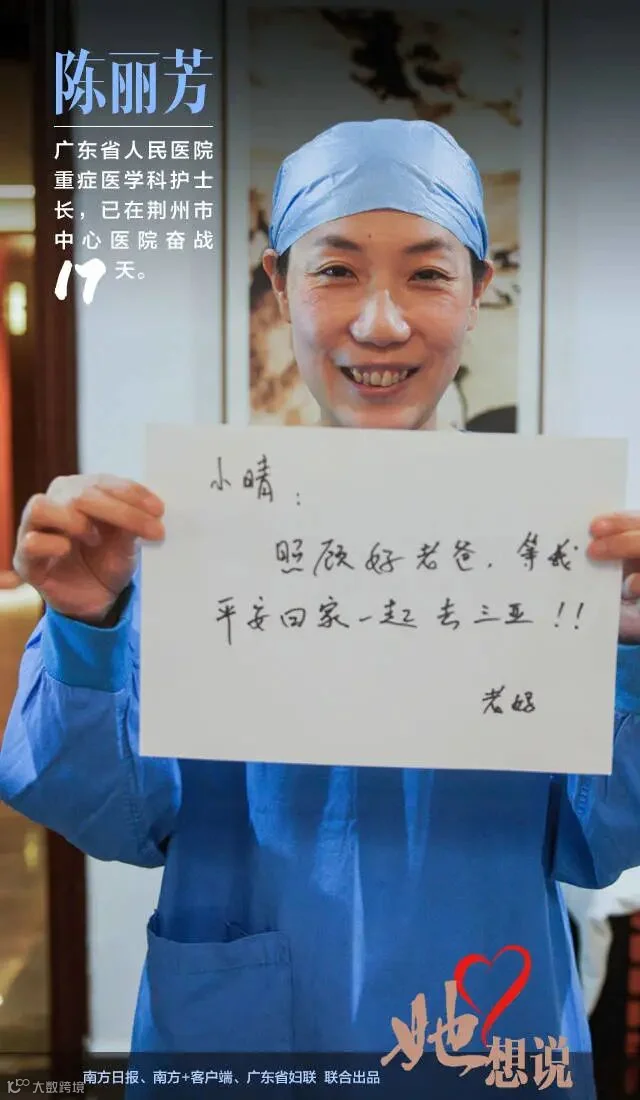 陈丽芳
广东省人民医院
重症医学科护士
长，已在荆州市
中心医院奋战
17天。
小晴：
照顾好老爸，等我
平安回家一起去三亚！！
老妈
她想说
南方日报、南方+客户端、广东省妇联 联合出品
大数跨境